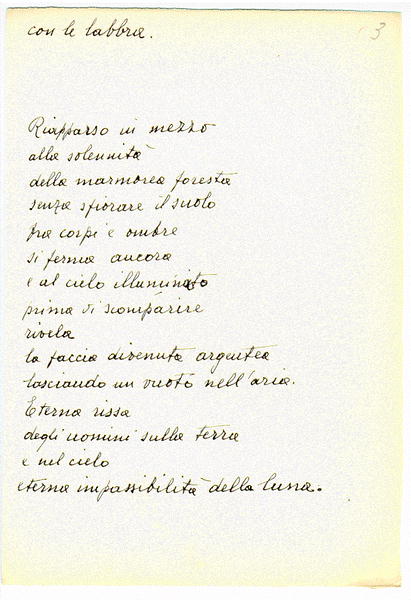 con le labbra.
3
Riapparso in mezzo
alla solennità
della marmorea foresta
senza sfiorare il suolo
fra corpi e ombre
si ferma ancora
e al cielo illuminato
prima di scomparire
rivela
la faccia divenuta argentea
lasciando un vuoto nell'aria.
Eterna rissa
degli uomini sulla terra
e nel cielo
eterna impassibilità della luna.